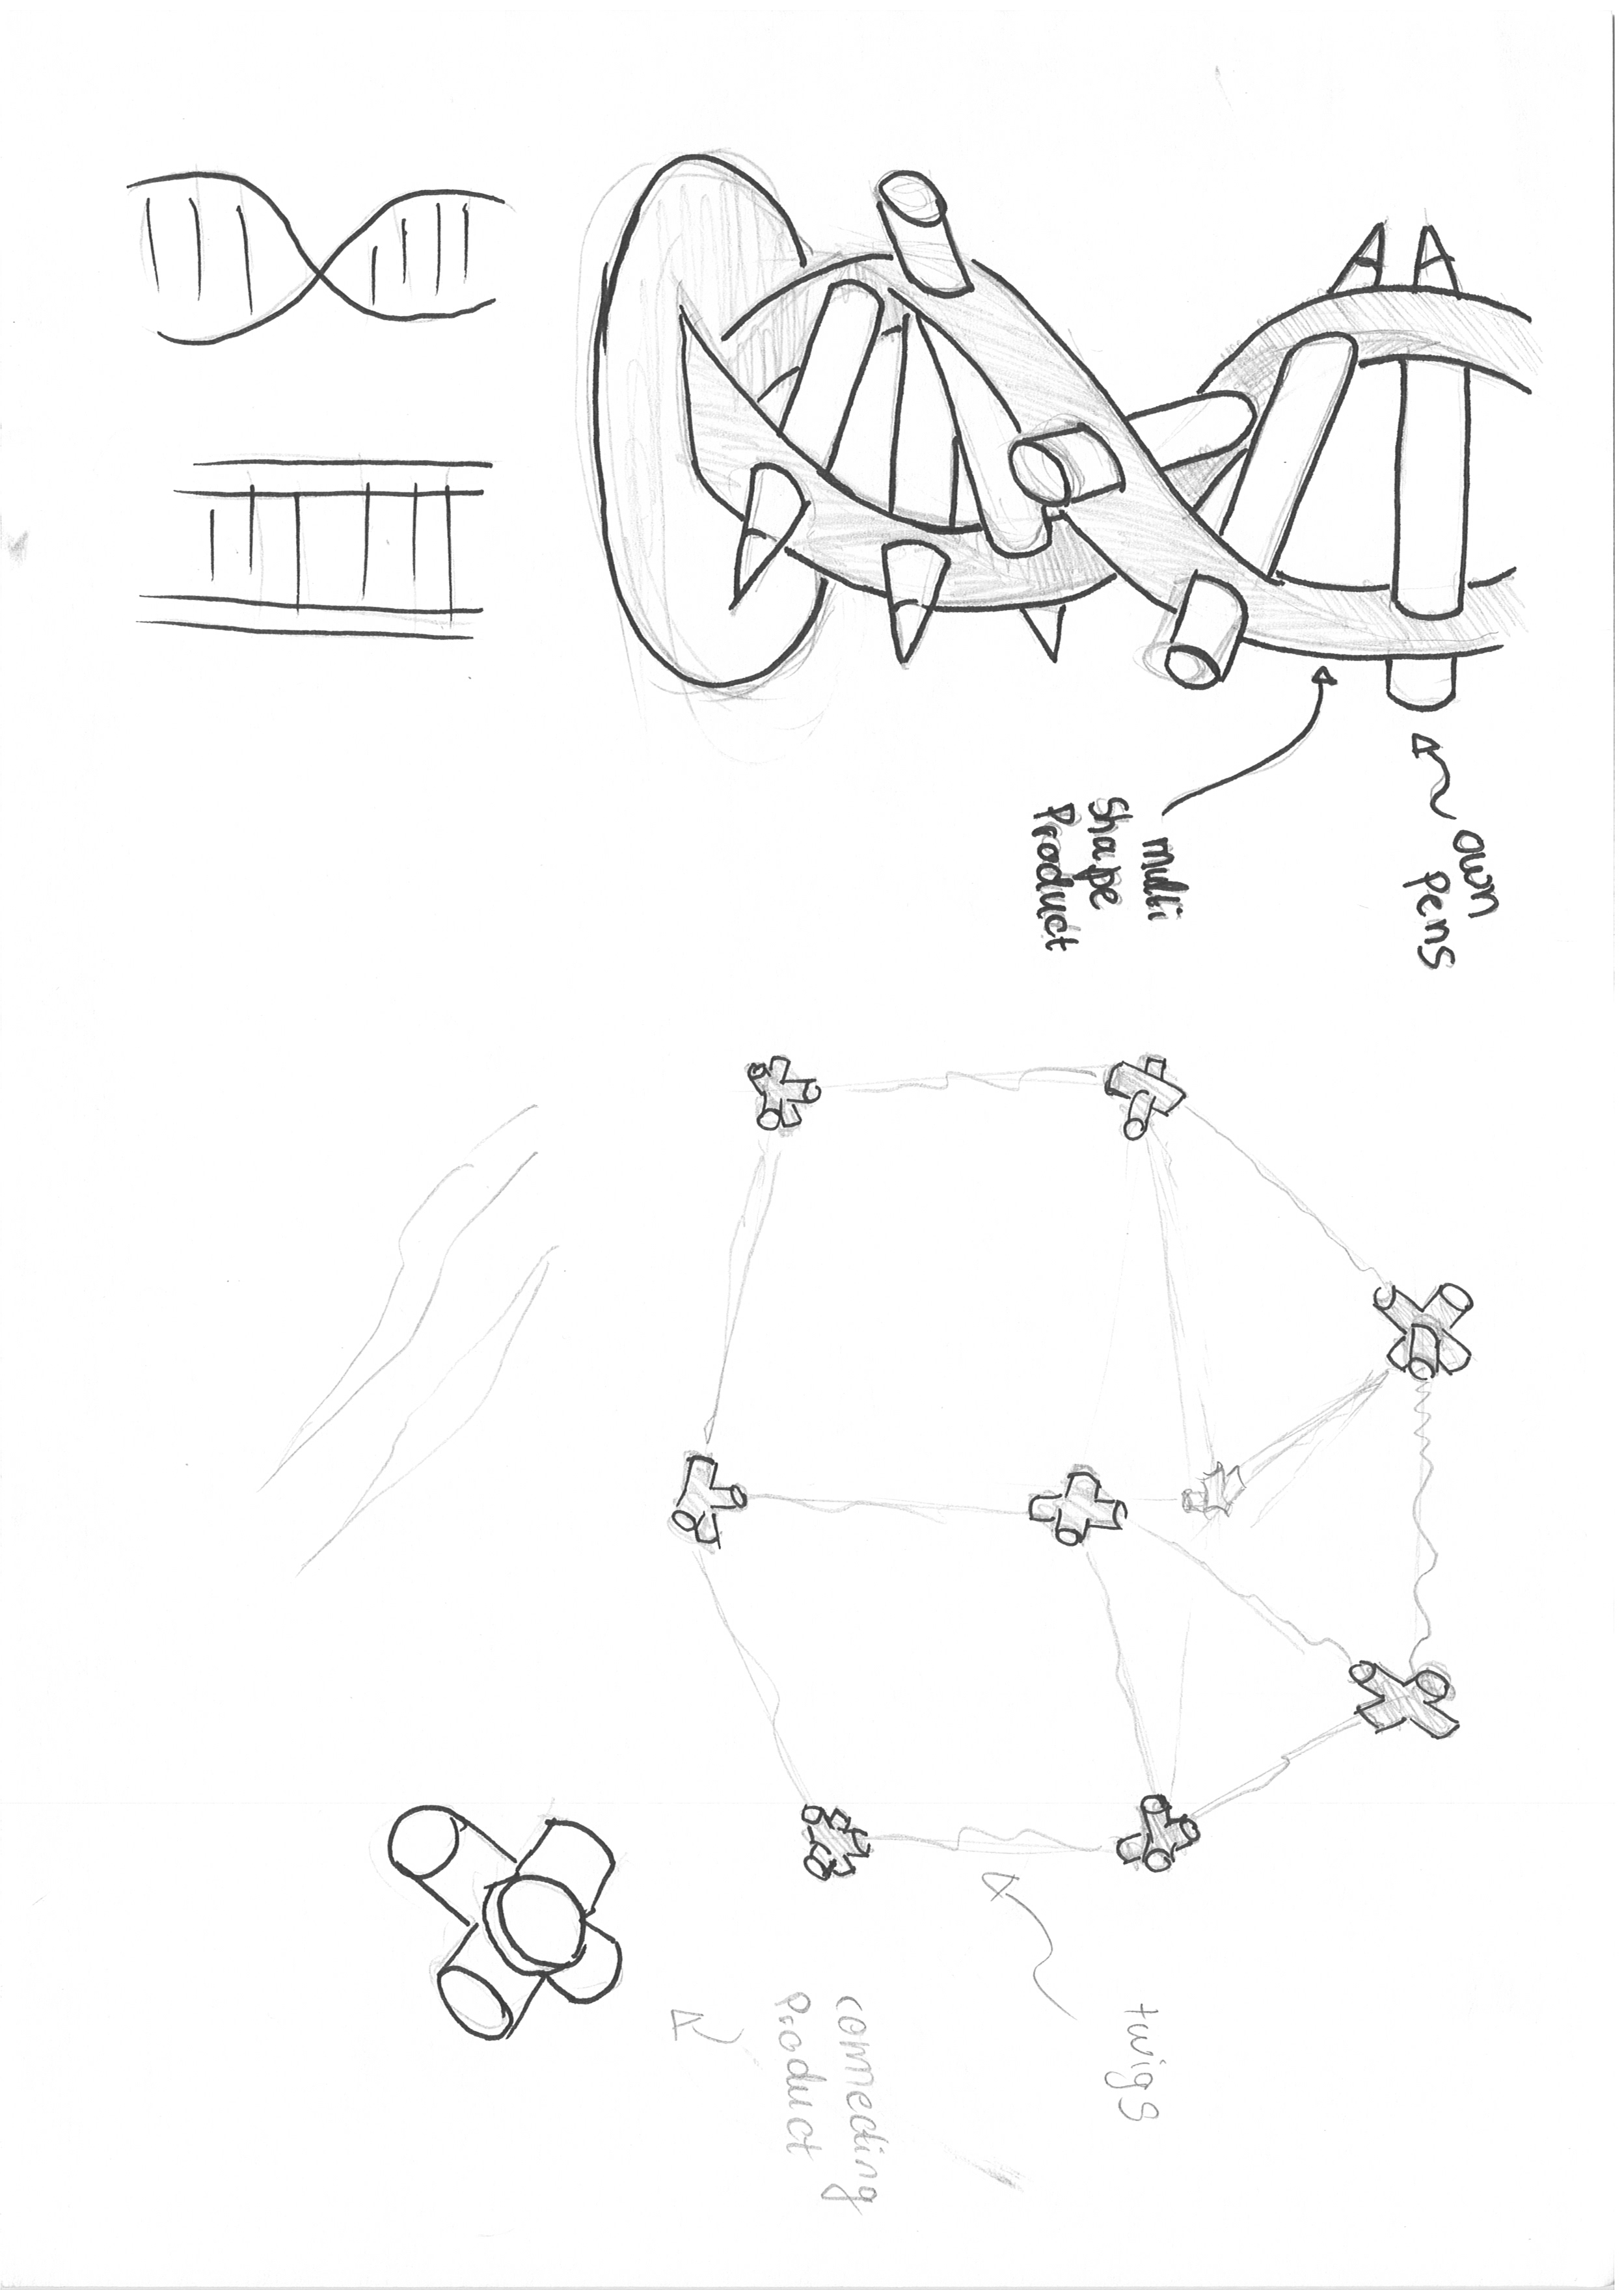 own
Pens
multi
Shape
Product
twigs
connecting
Product